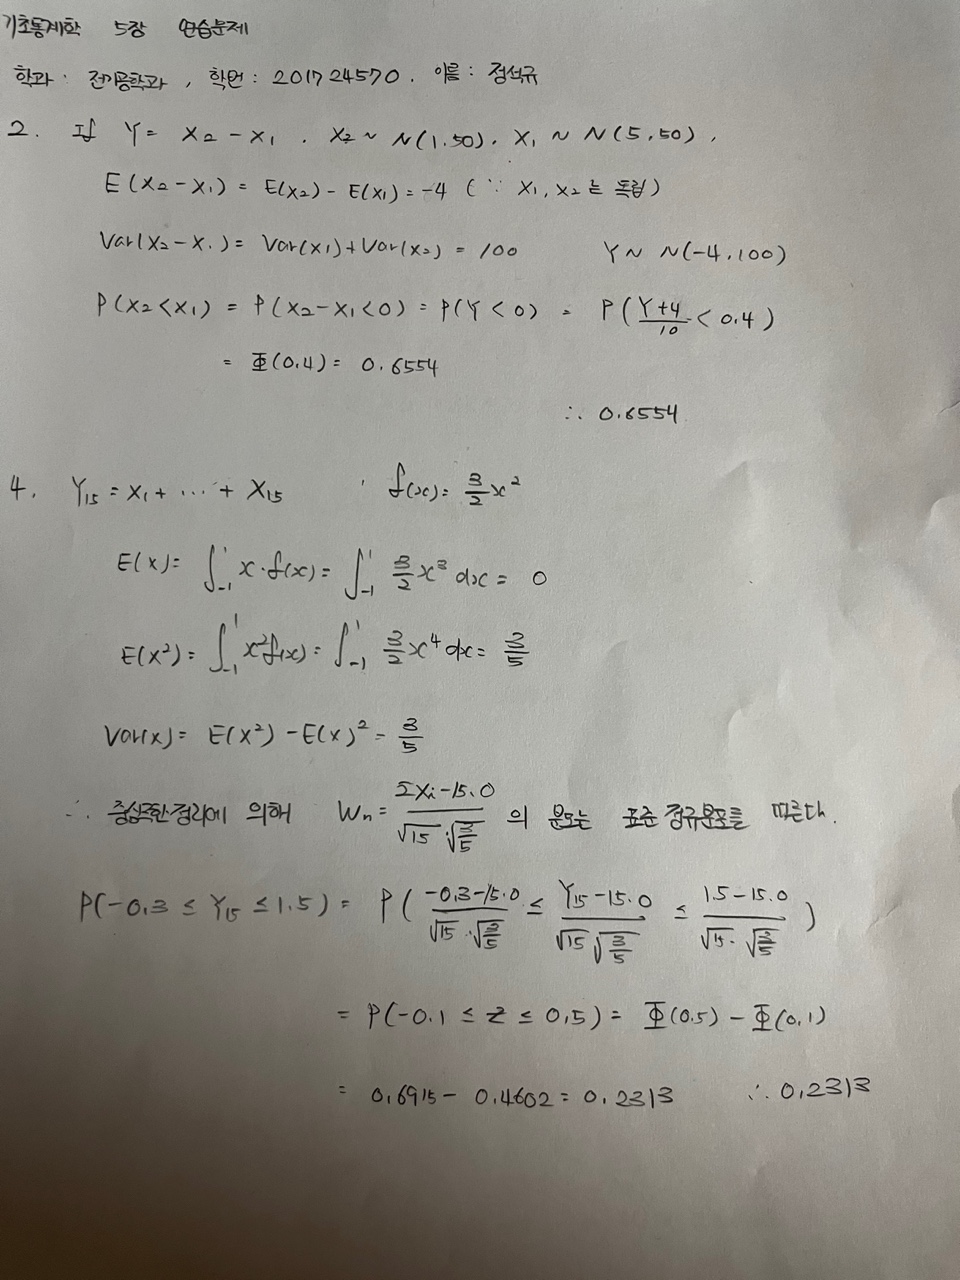 기초통계학 5장 연습문제
학과 : 전기공학과 , 학번 : 201724570 . 이름 : 정석규
2. If Y = X₂ - X₁ . X₂ ~ N(1.50). X₁ ~ N(5.50) ,
E(X₂-X₁) = E(X₂) - E(X₁) = -4 ( ∵ X₁, X₂ 는 독립 )
Var(X₂-X₁) = Var(X₁) + Var(X₂) = 100 Y ~ N(-4.100)
P(X₂<X₁) = P(X₂-X₁<0) = P(Y<0) = P((Y+4)/10 < 0.4)
= Φ(0.4) = 0.6554
∴ 0.6554
4. Y₁₅ = X₁ + ... + X₁₅ , f(x) = 3/2 x²
E(X) = ∫₋₁¹ x·f(x) = ∫₋₁¹ 3/2 x³ dx = 0
E(X²) = ∫₋₁¹ x²f(x) = ∫₋₁¹ 3/2 x⁴ dx = 3/5
Var(X) = E(X²) - E(X)² = 3/5
∴ 중심극한정리에 의해 Wn = (ΣXi - 15.0)/(√15 · √(3/5)) 의 분포는 표준 정규분포를 따른다.
P(-0.3 ≤ Y₁₅ ≤ 1.5) = P( (-0.3-15.0)/(√15 · √(3/5)) ≤ (Y₁₅-15.0)/(√15 √(3/5)) ≤ (1.5-15.0)/(√15 · √(3/5)) )
= P(-0.1 ≤ Z ≤ 0.5) = Φ(0.5) - Φ(0.1)
= 0.6915 - 0.4602 = 0.2313 ∴ 0.2313